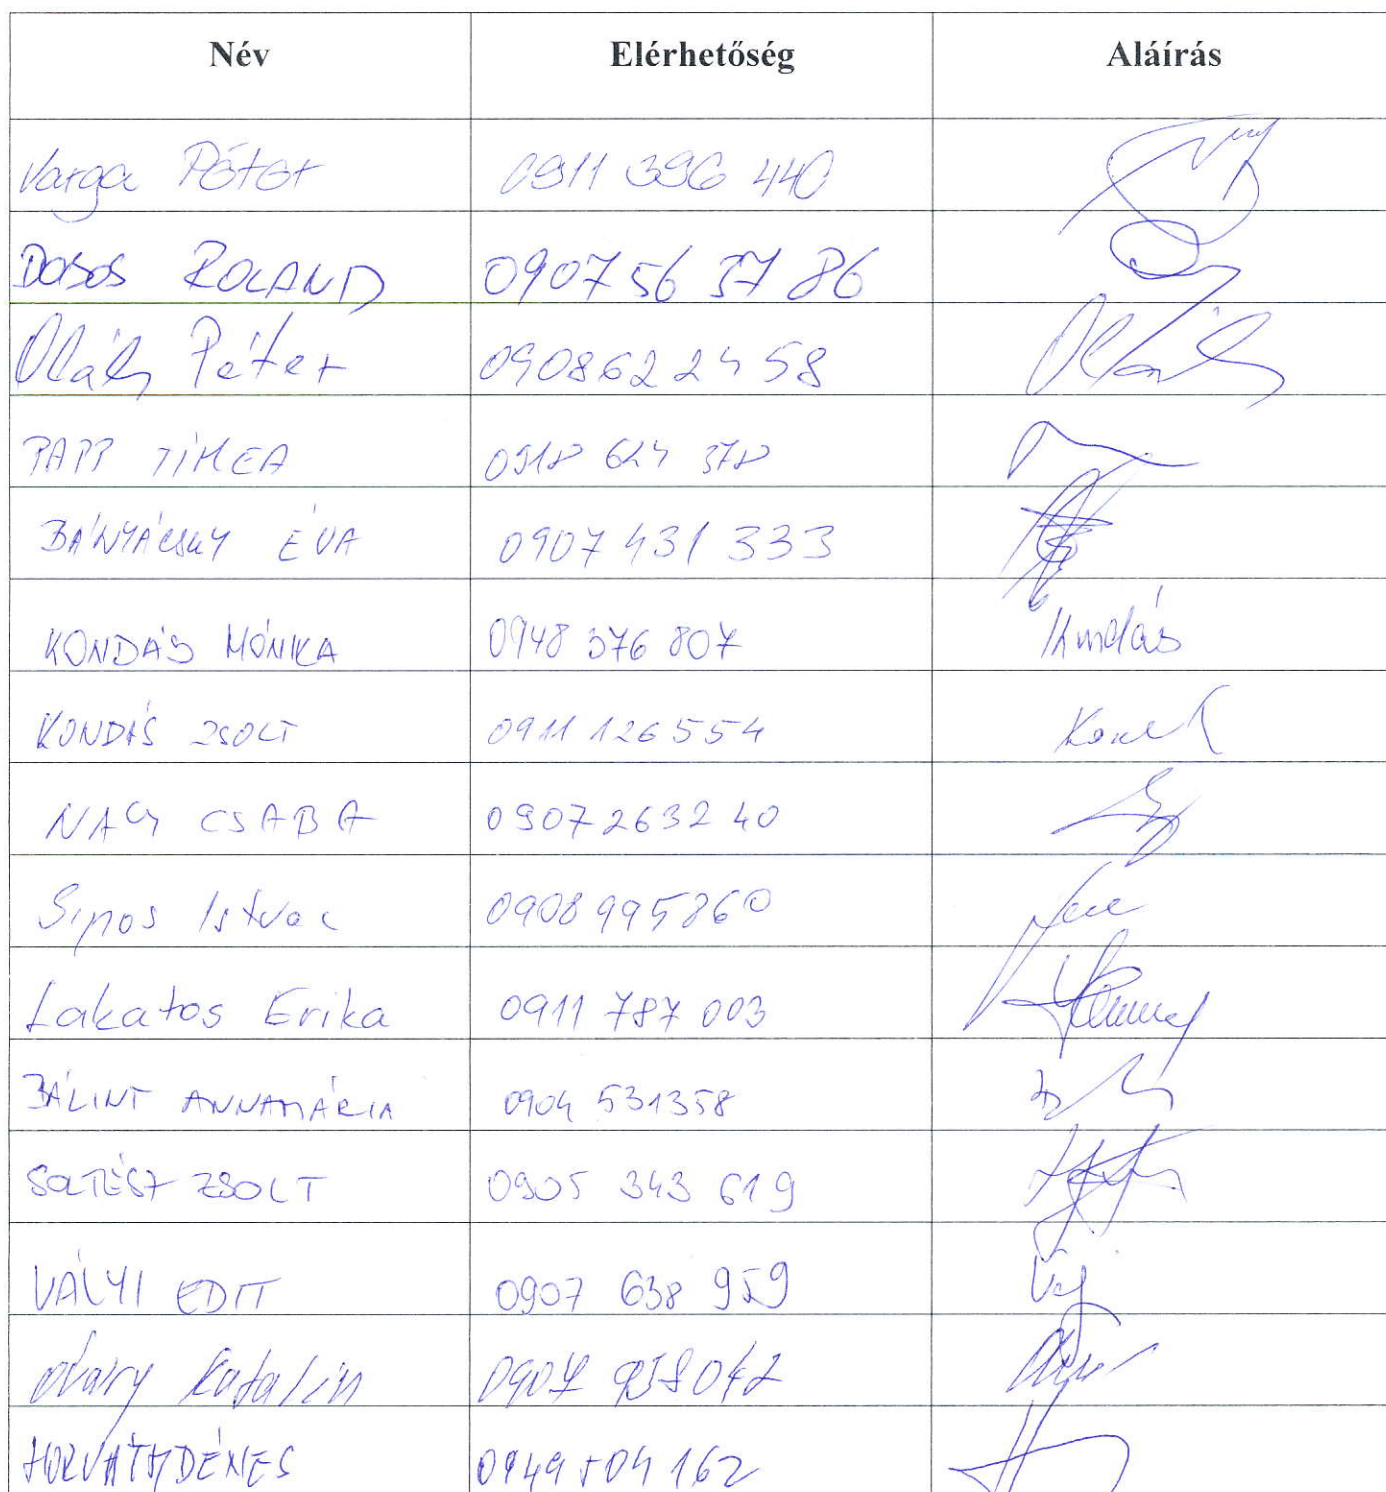 Név Elérhetőség Aláírás
Varga Péter 0911 396 440
Dosos ROLAND 0907 56 37 86
Oláh Péter 0908622458 Oláh
PAPP TÍMEA 0918 624 378
BÁNYÁCSKY ÉVA 0907 431 333
KONDÁS MÓNIKA 0948 376 807 Kondás
KONDÁS ZSOLT 0911 126554
NAGY CSABA 0907263240
Sipos István 0908995860
Lakatos Erika 0911 787 003
BÁLINT ANNAMÁRIA 0904 531358
SOLTÉSZ ZSOLT 0905 343 619
VÁLYI EDIT 0907 638 959
Katalin
HORVÁTH DÉNES 0949 504 162